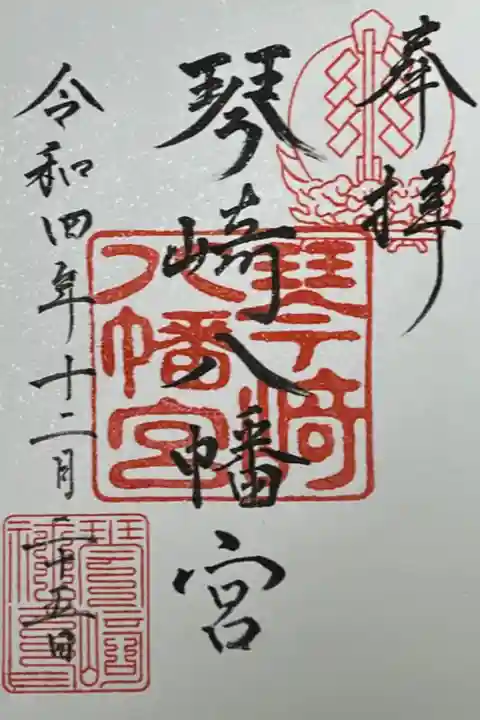 奉拝
琴崎八幡宮
令和四年十二月二十五日
琴崎
八幡宮